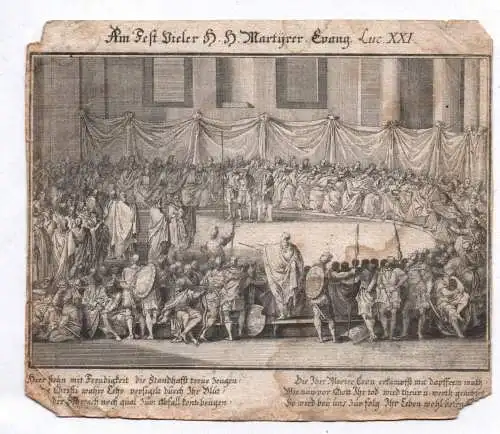 Am Fest Vieler H. H. Martÿrer. Evang. Luc. XXI.
Hier sehn mit Freudigkeit die Standhafft treue Zeugen:
Christi wahre Lehr versigelt durch Ihr Blut:
Schmach noch qual Zur Abfall kont beugen:
Die Ihre Marter Cron erkämpfft mit dapfferm muth
Wie nun vor Gott Ihr tod wird theur u. werth geachtet
So wird beÿ uns Zur folg Ihr Leben wohl